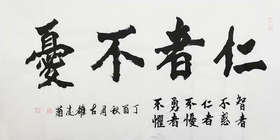 仁者不憂
智者
不惑
仁者
不憂
勇者
不懼
丁酉秋月古雄凌